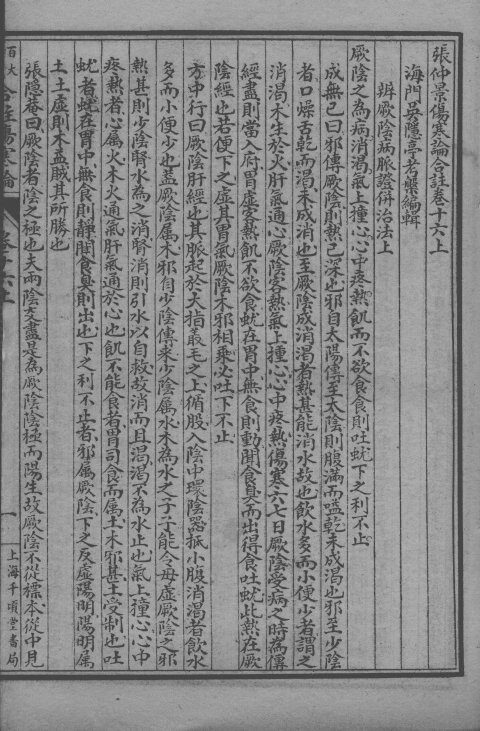 張仲景傷寒論合註卷十六上
海門吳隱亭考槃編輯
辨厥陰病脈證併治法上
厥陰之為病消渴氣上撞心心中疼熱飢而不欲食食則吐蚘下之利不止
成無已曰邪傳厥陰則熱已深也邪自太陽傳至太陰則腹滿而嗌乾未成渴也邪至少陰
者口燥舌乾而渴未成消也至厥陰成消渴者熱甚能消水故也飲水多而小便少者謂之
消渴木生於火肝氣通心厥陰客熱氣上撞心心中疼熱傷寒六七日厥陰受病之時為傳
經盡則當入府胃虛客熱飢不欲食蚘在胃中無食則動聞食臭而出得食吐蚘此熱在厥
陰經也若便下之虛其胃氣厥陰木邪相乘必吐下不止
方中行曰厥陰肝經也其脈起於大指叢毛之上循股入陰中環陰器抵小腹消渴者飲水
多而小便少也蓋厥陰属木邪自少陰傳来少陰属水木為水之子子能令母虛厥陰之邪
熱甚則少陰腎水為之消腎消則引水以自救故消而且渴渴不為水止也氣上撞心心中
疼熱者心属火木火通氣肝氣通於心也飢不能食者胃司食而属土木邪甚土受制也吐
蚘者蚘在胃中無食則靜聞食臭則出也下之利不止者邪属厥陰下之反虛陽明陽明属
土土虛則木益賊其所勝也
張隱菴曰厥陰者陰之極也夫兩陰交盡是為厥陰陰極而陽生故厥陰不從標本從中見
百大
合註傷寒論
卷十六上
一
上海千頃堂書局